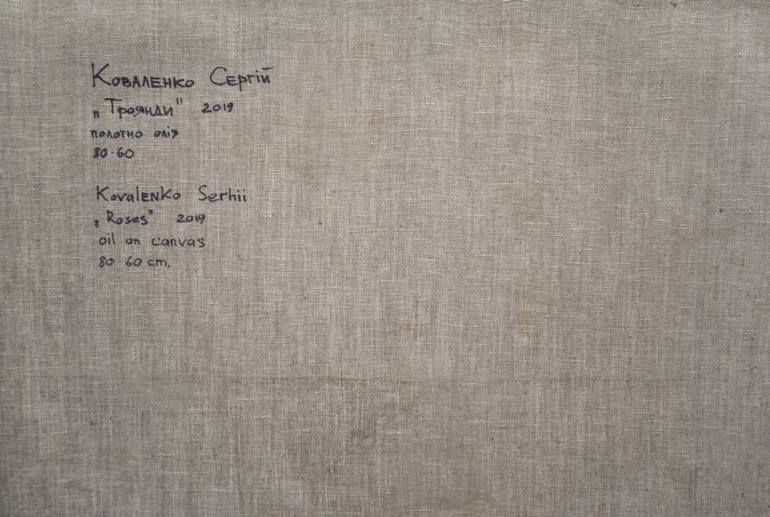 Коваленко Сергій
„Троянди" 2019
полотно олія
80·60
Kovalenko Serhii
„Roses" 2019
oil on canvas
80·60 cm.